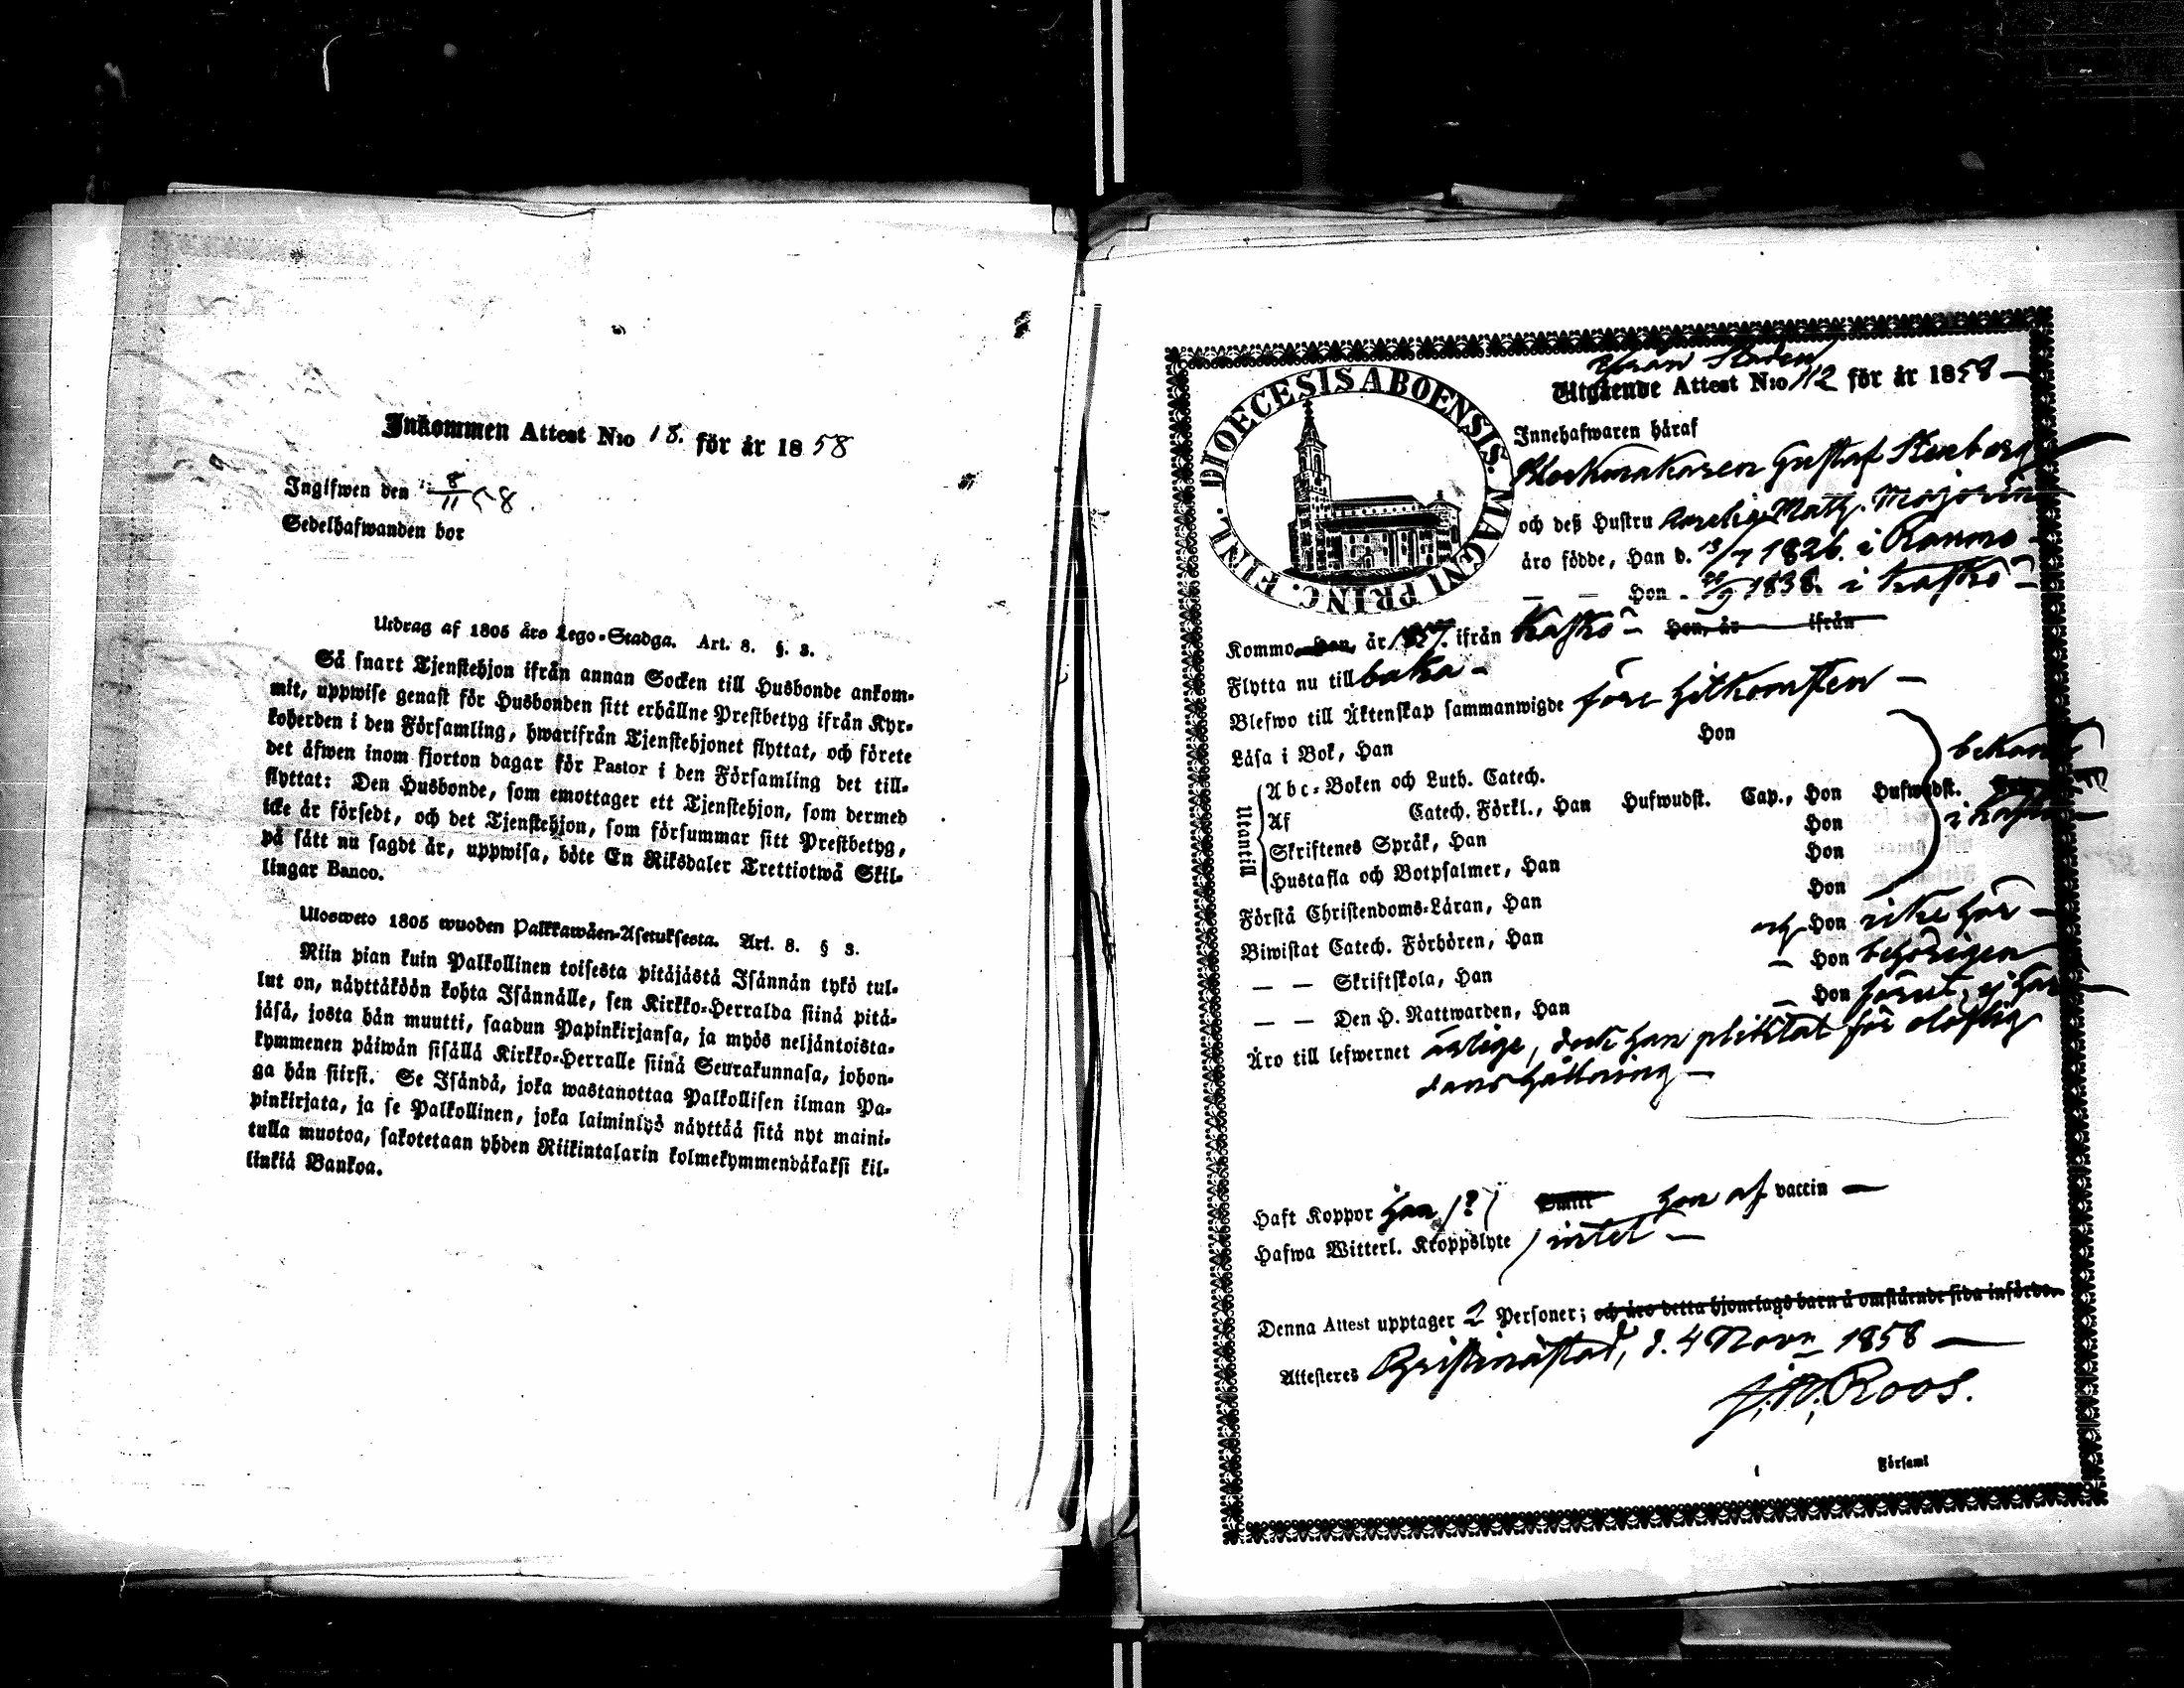 Inkommen Attest No 18. för år 1858
Ingifwen den 8/11 58.
Sedelhafwanden bor
Utdrag af 1805 års Lego-Stadga. Art. 8. §. 3.
Så snart Tjenstehjon ifrån annan Socken till Husbonde ankom-
mit, uppwise genast för Husbonden sitt erhållne Prestbetyg ifrån Kyr-
koherden i den Församling, hwarifrån Tjenstehjonet flyttat, och förete
det äfwen inom fjorton dagar för Pastor i den Församling det till-
flyttat: Den Husbonde, som emottager ett Tjenstehjon, som dermed
icke är försedt, och det Tjenstehjon, som försummar sitt Prestbetyg,
på sätt nu sagdt är, uppwisa, böte En Riksdaler Trettiotwå Skil-
lingar Banco.
Uloswetö 1805 wuoden Palkkawäen-Asetuksesta. Art. 8. § 3.
Niin pian kuin Palkollinen toisesta pitäjästä Isännän tykö tul-
lut on, näyttäköön kohta Isännälle, sen Kirkko-Herralda siinä pitä-
jäsä, josta hän muutti, saadun Papinkirjansa, ja myös neljäntoista-
kymmenen päiwän sisällä Kirkko-Herralle siinä Seurakunnasa, johon-
ga hän siirsi. Se Isändä, joka wastanottaa Palkollisen ilman Pa-
pinkirjata, ja se Palkollinen, joka laiminlyö näyttää sitä nyt maini-
tulla muotoa, sakotetaan yhden Riikintalarin kolmekymmendäkaksi kil-
linkiä Bankoa.
DIOECESIS ABOENSIS. MAGNI PRINC. FINL.
från Staden
Utgående Attest No 112 för år 1858
Innehafwaren häraf
Klockmakaren Gustaf Stenberg
och deß Hustru Aurelia Math. Majorin
äro födde, Han d. 13/7 1826. i Raumo
— — Hon - 1838. i Kaskö
Kommo han, år 1857. ifrån Kaskö Hon, år ifrån
Flytta nu till baka
Blefwo till Äktenskap sammanwigde före hitkomsten
Läsa i Bok, Han Hon
Utantill
Abc-Boken och Luth. Catech.
Af Catech. Förkl., Han Hufwudst. Cap., Hon Hufwudst.
Skriftenes Språk, Han Hon
Hustafla och Botpsalmer, Han Hon
i Kaskö
Förstå Christendoms-Läran, Han Hon
Biwistat Catech. Förhören, Han och Hon icke här
— — Skriftskola, Han — Hon behörigen
— — Den H. Nattwarden, Han — Hon förut, ej här
Äro till lefwernet ärlige, dock han pliktat för olaflig
danshållning
Haft Koppor han /?/ hon af vaccin
Hafwa Witterl. Kroppslyte intet
Denna Attest upptager 2 Personer; och äro detta hjonelags barn å omstående sida införde.
Attesteres Christinæstad, d. 4 Novr 1858
Roos.
i Församl